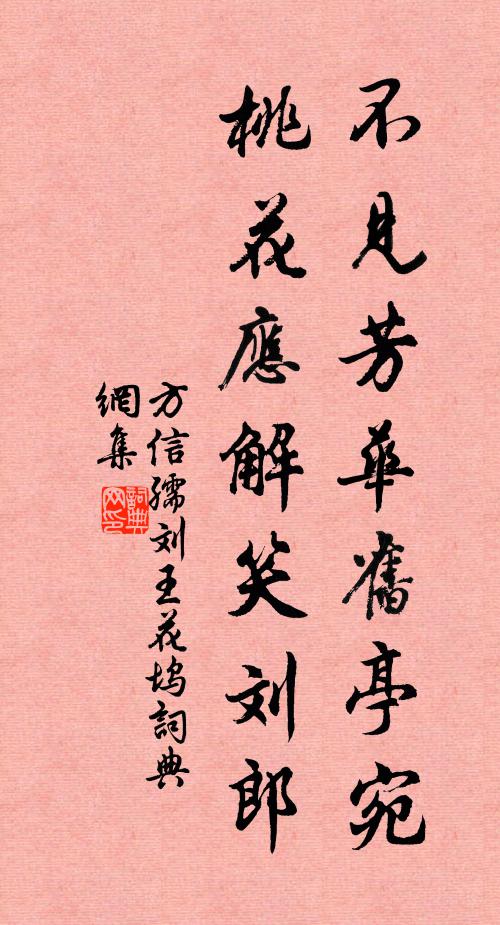 不見芳華舊亭宛
桃花應解笑刘郎
方信孺刘王花塢詞典
網集
詞典
网印